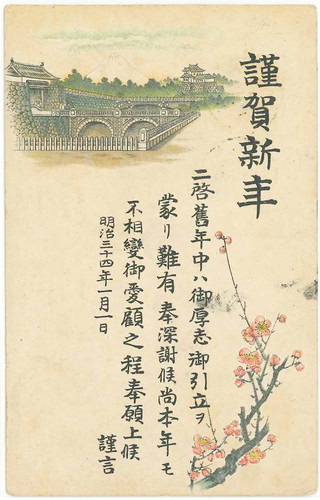 謹賀新年
二啓舊年中ハ御厚志御引立ヲ
蒙リ難有奉深謝候尚本年モ
不相變御愛顧之程奉願上候
謹言
明治三十四年一月一日